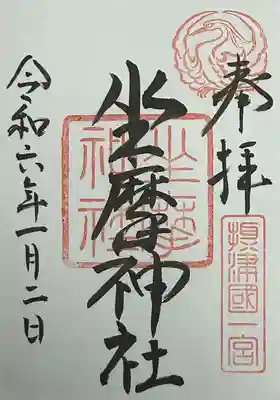 奉拝
摂津國一宮
坐摩神社
坐摩神社
令和六年一月二日